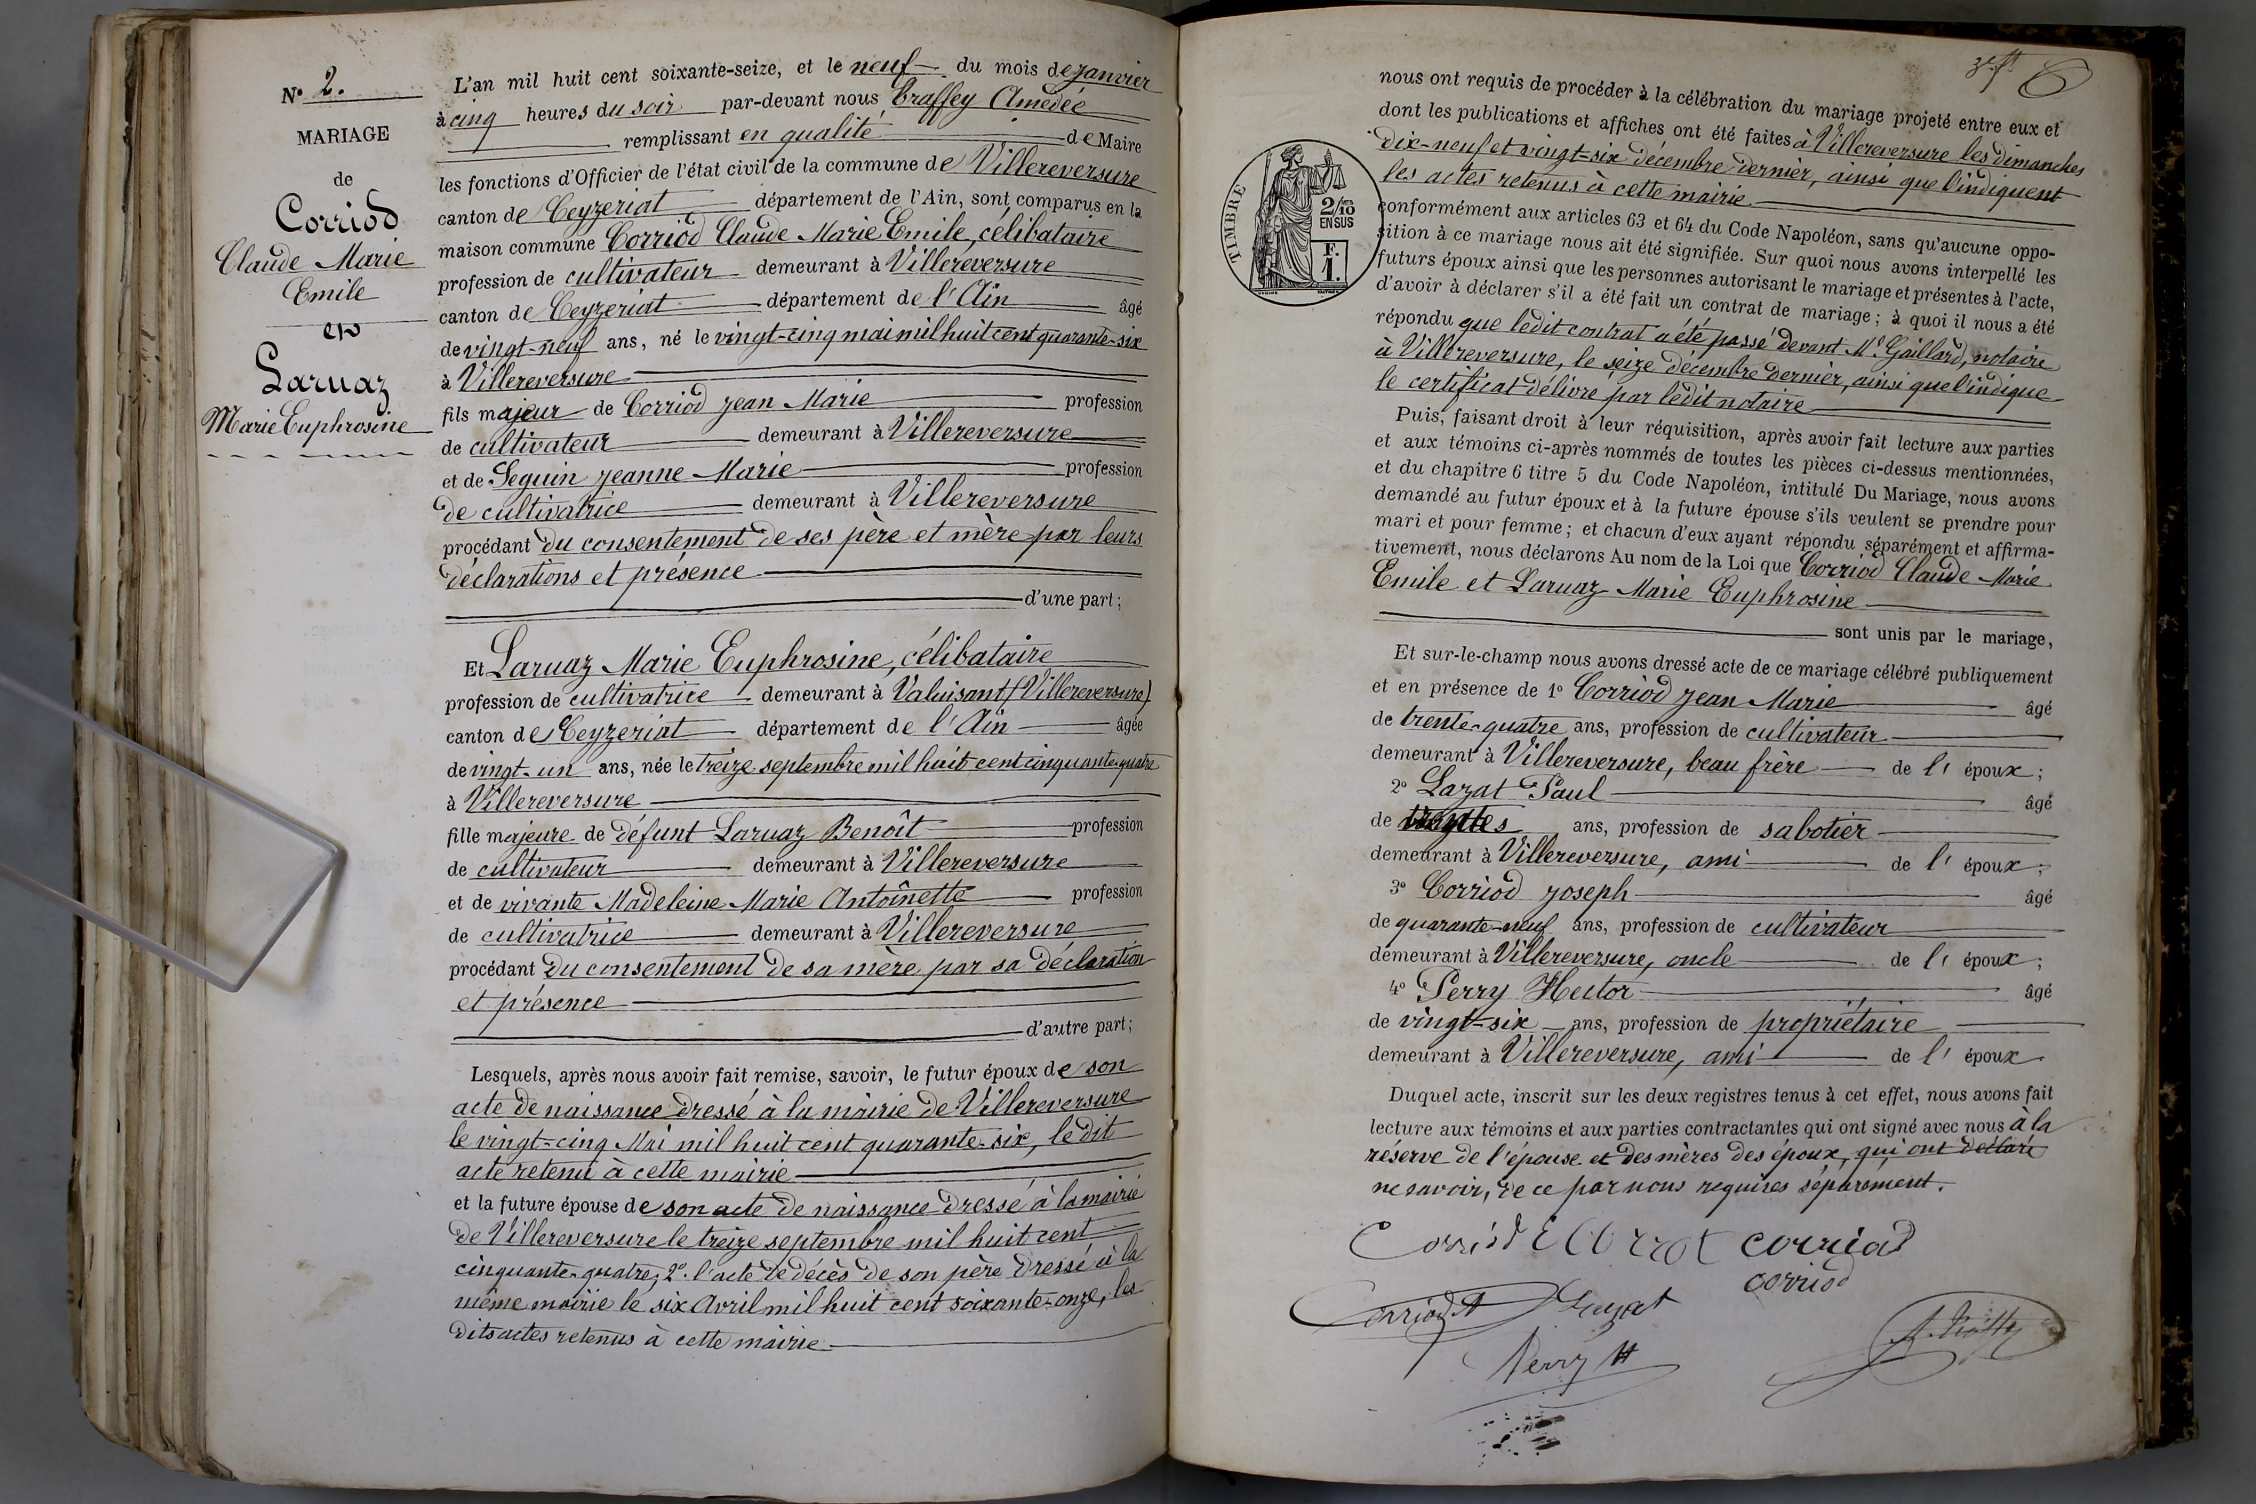 N° 2.
MARIAGE
de
Corriod
Claude Marie
Emile
et
Laruaz
Marie Euphrosine
L'an mil huit cent soixante-seize, et le neuf du mois de janvier
à cinq heures du soir par-devant nous Traffey Amédée
remplissant en qualité de Maire
les fonctions d'Officier de l'état civil de la commune de Villereversure
canton de Ceyzeriat département de l'Ain, sont comparus en la
maison commune Corriod Claude Marie Emile, célibataire
profession de cultivateur demeurant à Villereversure
canton de Ceyzeriat département de l'Ain âgé
de vingt-neuf ans, né le vingt-cinq mai mil huit cent quarante-six
à Villereversure
fils majeur de Corriod jean Marie profession
de cultivateur demeurant à Villereversure
et de Seguin jeanne Marie profession
de cultivatrice demeurant à Villereversure
procédant du consentement de ses père et mère par leurs
déclarations et présence
d'une part;
Et Laruaz Marie Euphrosine, célibataire
profession de cultivatrice demeurant à Valuisant (Villereversure)
canton de Ceyzeriat département de l'Ain âgée
de vingt-un ans, née le treize septembre mil huit cent cinquante-quatre
à Villereversure
fille majeure de défunt Laruaz Benoît profession
de cultivateur demeurant à Villereversure
et de vivante Madeleine Marie Antoînette profession
de cultivatrice demeurant à Villereversure
procédant du consentement de sa mère par sa déclaration
et présence
d'autre part;
Lesquels, après nous avoir fait remise, savoir, le futur époux de son
acte de naissance dressé à la mairie de Villereversure
le vingt-cinq Mai mil huit cent quarante-six, le dit
acte retenu à cette mairie
et la future épouse de son acte de naissance dressé à la mairie
de Villereversure le treize septembre mil huit cent
cinquante-quatre, 2° l'acte de décès de son père dressé à la
même mairie le six Avril mil huit cent soixante-onze, les
dits actes retenus à cette mairie
nous ont requis de procéder à la célébration du mariage projeté entre eux et
dont les publications et affiches ont été faites à Villereversure les dimanches
dix-neuf et vingt-six décembre dernier, ainsi que l'indiquent
les actes retenus à cette mairie
TIMBRE
2/10
EN SUS
F.
1.
conformément aux articles 63 et 64 du Code Napoléon, sans qu'aucune oppo-
sition à ce mariage nous ait été signifiée. Sur quoi nous avons interpellé les
futurs époux ainsi que les personnes autorisant le mariage et présentes à l'acte,
d'avoir à déclarer s'il a été fait un contrat de mariage; à quoi il nous a été
répondu que ledit contrat a été passé devant Me Gaillard, notaire
à Villereversure, le seize décembre dernier, ainsi que l'indique
le certificat délivré par ledit notaire
Puis, faisant droit à leur réquisition, après avoir fait lecture aux parties
et aux témoins ci-après nommés de toutes les pièces ci-dessus mentionnées,
et du chapitre 6 titre 5 du Code Napoléon, intitulé Du Mariage, nous avons
demandé au futur époux et à la future épouse s'ils veulent se prendre pour
mari et pour femme; et chacun d'eux ayant répondu séparément et affirma-
tivement, nous déclarons Au nom de la Loi que Corriod Claude Marie
Emile et Laruaz Marie Euphrosine
sont unis par le mariage,
Et sur-le-champ nous avons dressé acte de ce mariage célébré publiquement
et en présence de 1° Corriod jean Marie âgé
de trente-quatre ans, profession de cultivateur
demeurant à Villereversure, beau frère de l' époux;
2° Lazat Paul âgé
de ans, profession de sabotier
demeurant à Villereversure, ami de l' époux;
3° Corriod joseph âgé
de quarante-neuf ans, profession de cultivateur
demeurant à Villereversure, oncle de l' époux;
4° Perry Hector âgé
de vingt-six ans, profession de propriétaire
demeurant à Villereversure, ami de l' époux
Duquel acte, inscrit sur les deux registres tenus à cet effet, nous avons fait
lecture aux témoins et aux parties contractantes qui ont signé avec nous à la
réserve de l'épouse et des mères des époux, qui ont déclaré
ne savoir, de ce par nous requises séparément.
Corriod E corriod
corriod
Corriod Lazat
Perry H